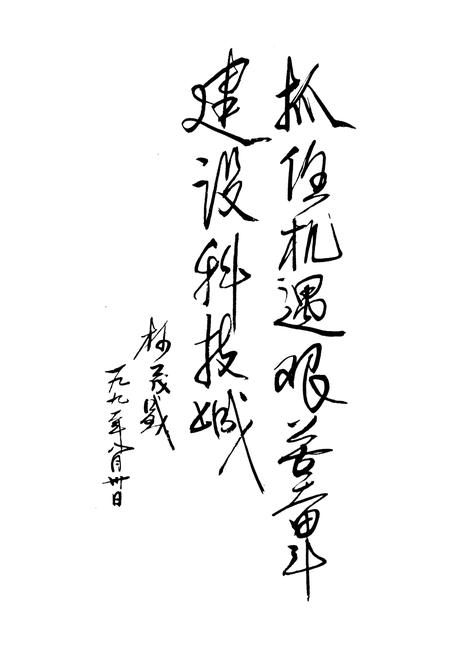 抓住机遇艰苦奋斗
建设科技城
一九九 年八月卅日